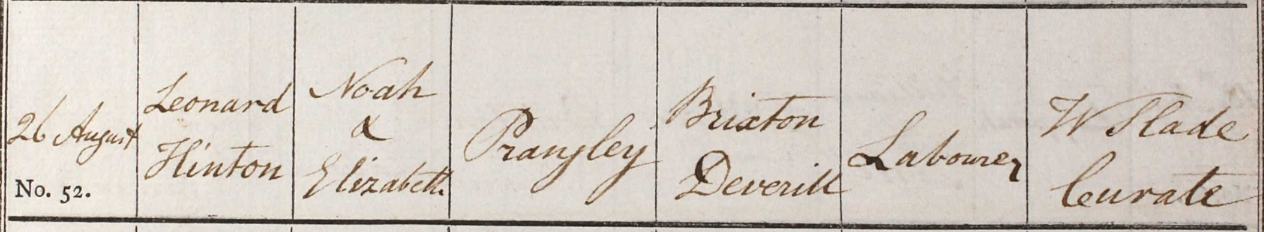 26 August
No. 52.
Leonard
Hinton
Noah
&
Elizabeth
Prangley
Brixton
Deverill
Labourer
W Slade
Curate